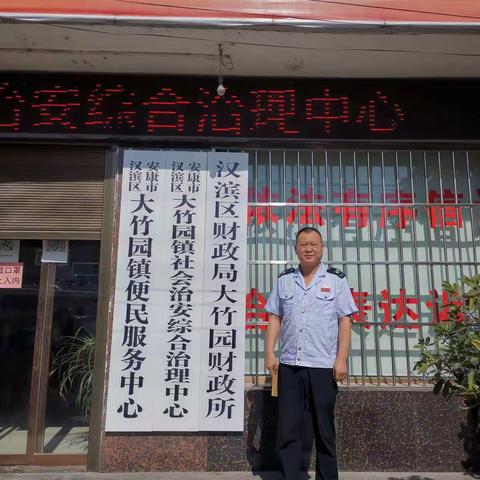 治安综合治理中心
汉滨区财政局大竹园财政所
安康市
汉滨区
大竹园镇社会治安综合治理中心
安康市
汉滨区
大竹园镇便民服务中心
依法有序信
表达
戴口罩
入内